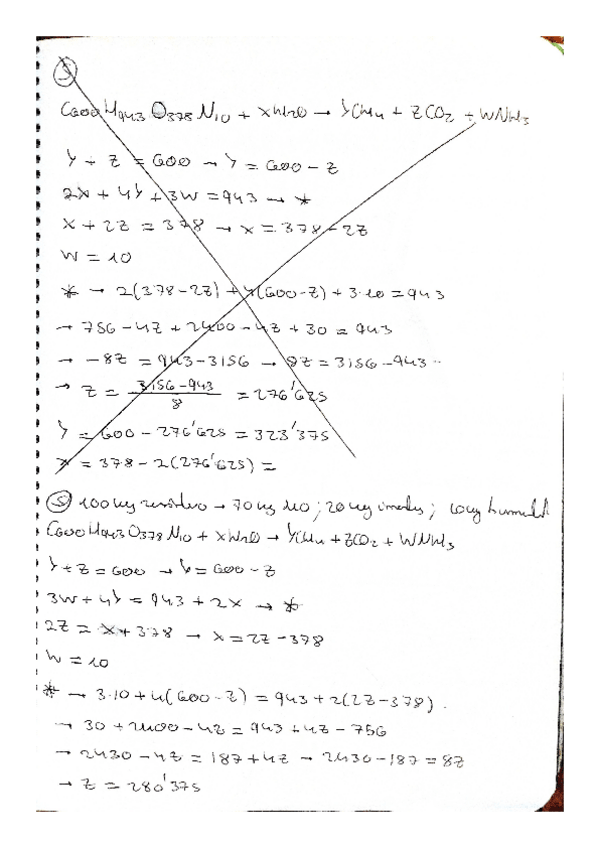 5
C600H943O378N10 + xH2O → yCH4 + zCO2 + wNH3
y + z = 600 → y = 600 - z
2x + 4y + 3w = 943 → *
x + 2z = 378 → x = 378 - 2z
w = 10
* → 2(378-2z) + 4(600-z) + 3·10 = 943
→ 756 - 4z + 2400 - 4z + 30 = 943
→ -8z = 943-3156 → 8z = 3156-943
→ z = 3156-943 / 8 = 276'625
y = 600 - 276'625 = 323'375
x = 378 - 2(276'625) =
5 100kg residuo → 70kg MO; 20kg inertes; 10kg humedad
C600H943O378N10 + xH2O → yCH4 + zCO2 + wNH3
y + z = 600 → y = 600 - z
3w + 4y = 943 + 2x → *
2z = x + 378 → x = 2z - 378
w = 10
* → 3·10 + 4(600-z) = 943 + 2(2z-378)
→ 30 + 2400 - 4z = 943 + 4z - 756
→ 2430 - 4z = 187 + 4z → 2430 - 187 = 8z
→ z = 280'375